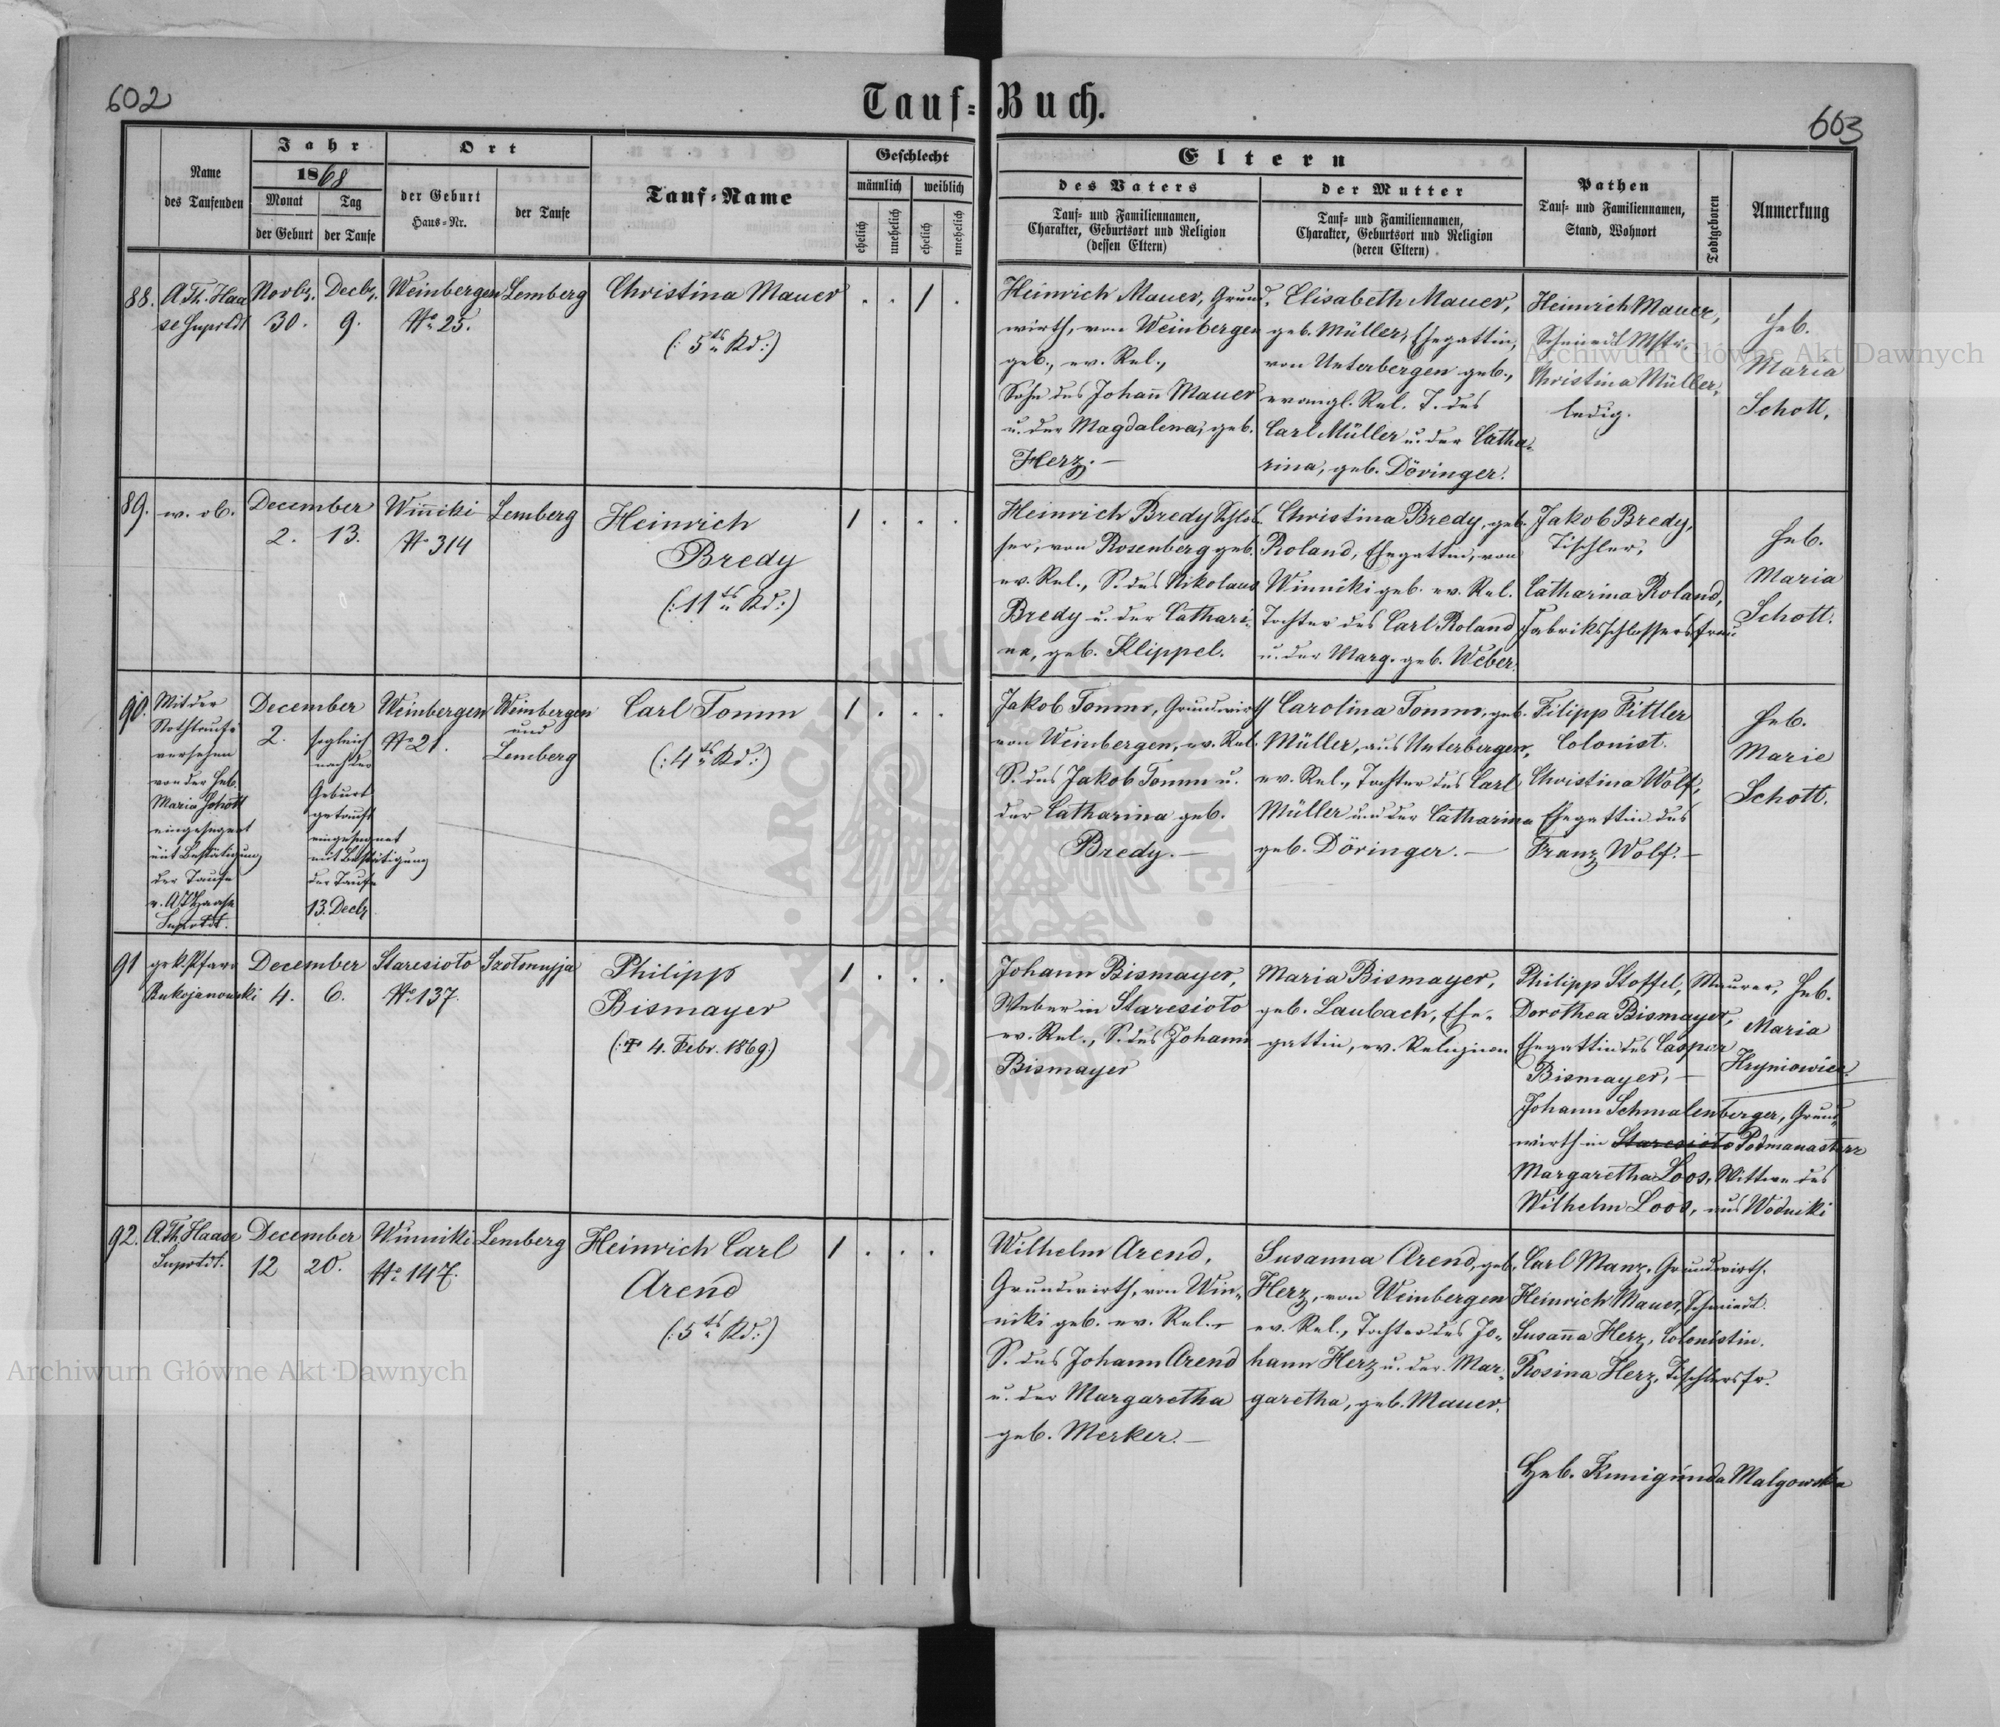 602
Tauf-Buch.
663
Name
des Taufenden
Jahr
1868
Monat
Tag
der Geburt
der Taufe
Ort
der Geburt
Haus-Nr.
der Taufe
Tauf-Name
Geschlecht
männlich
weiblich
ehelich
unehelich
ehelich
unehelich
Eltern
des Vaters
Tauf- und Familiennamen,
Charakter, Geburtsort und Religion
(dessen Eltern)
der Mutter
Tauf- und Familiennamen,
Charakter, Geburtsort und Religion
(deren Eltern)
Pathen
Tauf- und Familiennamen,
Stand, Wohnort
Todtgeboren
Anmerkung
88.
A. Th. Haa
se Suprtdt
Novbr.
30.
Decbr.
9.
Weinbergen
No 25.
Lemberg
Christina Mauer
(: 5tes Kd :)
. . 1 .
Heinrich Mauer, Grund-
wirth, von Weinbergen
geb., ev. Rel.,
Sohn des Johañ Mauer
u. der Magdalena, geb.
Herz. —
Elisabeth Mauer,
geb. Müller, Ehegattin,
von Unterbergen geb.,
evangl. Rel. T. des
Carl Müller u. der Catha-
rina, geb. Döringer.
Heinrich Mauer,
Schmied Mstr.
Christina Müller,
ledig.
Heb.
Maria
Schott.
89.
w. ob.
December
2. 13.
Wiñiki
No 314
Lemberg
Heinrich
Bredy
(: 11tes Kd :)
1 . . .
Heinrich Bredy Schlos-
ser, von Rosenberg geb.
ev. Rel., S. des Nikolaus
Bredy u. der Cathari-
na, geb. Klippel.
Christina Bredy, geb.
Roland, Ehegattin, von
Winniki geb. ev. Rel.
Tochter des Carl Roland
u. der Marg. geb. Weber.
Jakob Bredy,
Tischler,
Catharina Roland,
Fabriksschlossersfrau
Heb.
Maria
Schott.
90.
Mit der
Nothtaufe
versehen
von der Heb.
Maria Schott
eingesegnet
mit Bestätigung
der Taufe
v. A. T. Haase
Suprtdt.
December
2.
sogleich
nach der
Geburt
getauft
eingesegnet
mit Bestätigung
der Taufe
13. Decbr
Weinbergen
No 21.
Weinbergen
und
Lemberg
Carl Tomm
(: 4tes Kd :)
1 . . .
Jakob Tomm, Grundwirth
von Weinbergen, ev. Rel.
S. des Jakob Tomm u.
der Catharina geb.
Bredy. —
Carolina Tomm, geb.
Müller, aus Unterbergen,
ev. Rel., Tochter des Carl
Müller und der Catharina
geb. Döringer. —
Filipp Fittler
Colonist.
Christina Wolf,
Ehegattin des
Franz Wolf. —
Heb.
Marie
Schott.
91
gr. k. Pfarr
Rukojanowski
December
4. 6.
Staresioto
No 137.
Szotomyja
Philipp
Bismayer
(: † 4. Febr. 1869)
1 . . .
Johann Bismayer,
Weber in Staresioto
ev. Rel., S. des Johann
Bismayer
Maria Bismayer,
geb. Laubach, Ehe-
gattin, ev. Religion
Philipp Stoffel, Maurer,
Dorothea Bismayer,
Ehegattin des Caspar
Bismayer, —
Johann Schmalenberger, Grund-
wirth in Staresioto Podmanasterz
Margaretha Loos, Wittwe des
Wilhelm Loos, aus Wodniki
Heb.
Maria
Hryniowicz
92.
A. Th. Haase
Suprtdt.
December
12 20.
Winniki
No 147.
Lemberg
Heinrich Carl
Arend
(: 5tes Kd :)
1 . . .
Wilhelm Arend,
Grundwirth, von Win-
niki geb. ev. Rel. —
S. des Johann Arend
u. der Margaretha
geb. Merker. —
Susanna Arend, geb.
Herz, von Weinbergen
ev. Rel., Tochter des Jo-
hann Herz u. der Mar-
garetha, geb. Mauer.
Carl Manz, Grundwirth.
Heinrich Mauer, Schmied.
Susañna Herz, Colonistin.
Rosina Herz, Tischlersfr.
Heb. Kunigunda Malgowska
Archiwum Główne Akt Dawnych
Archiwum Główne Akt Dawnych
ARCHIWUM GŁÓWNE AKT DAWNYCH